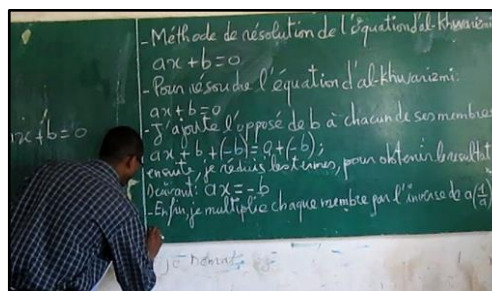 - Méthode de résolution de l'équation d'al-khwarizmi
ax + b = 0
- Pour résoudre l'équation d'al-khwarizmi:
ax + b = 0
- J'ajoute l'opposé de b à chacun de ses membres
ax + b + (-b) = 0 + (-b);
ensuite, je réduis les termes, pour obtenir le resultat
suivant: ax = -b
- Enfin, je multiplie chaque membre par l'inverse de a (1/a)
ax + b = 0